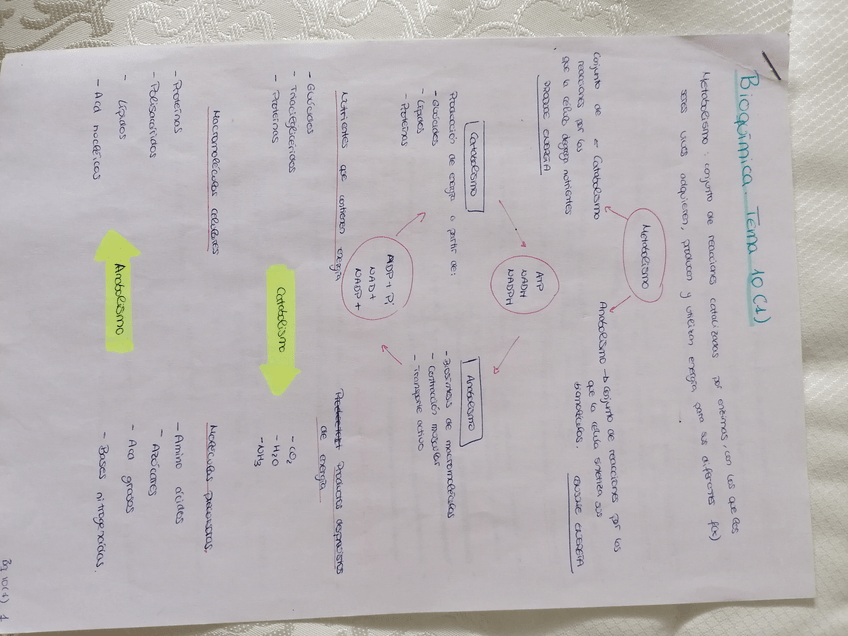 Bioquímica. Tema 10 (1)
Metabolismo: conjunto de reacciones catalizadas por enzimas, con las que los
seres vivos adquieren, producen y utilizan energía para sus diferentes f(x)
Metabolismo
Conjunto de ← Catabolismo
reacciones por las
que la célula degrada nutrientes
PRODUCE ENERGÍA
Anabolismo → conjunto de reacciones por las
que la célula sintetiza sus
biomoléculas. CONSUME ENERGÍA
Catabolismo
Producción de energía a partir de:
- Glúcidos
- Lípidos
- Proteínas
ATP
NADH
NADPH
Anabolismo
- Biosíntesis de macromoléculas
- Contracción muscular
- Transporte activo
ADP + Pi
NAD+
NADP+
Nutrientes que contienen energía
- Glúcidos
- Triacilglicéridos
- Proteínas
Catabolismo
Productos desprovistos
de energía
- CO2
- H2O
- NH3
Macromoléculas celulares
- Proteínas
- Polisacáridos
- Lípidos
- Acd nucléicos
Anabolismo
Moléculas precursoras.
- Amino ácidos
- Azúcares
- Acd grasos
- Bases nitrogenadas.
Bq 10(1) 1